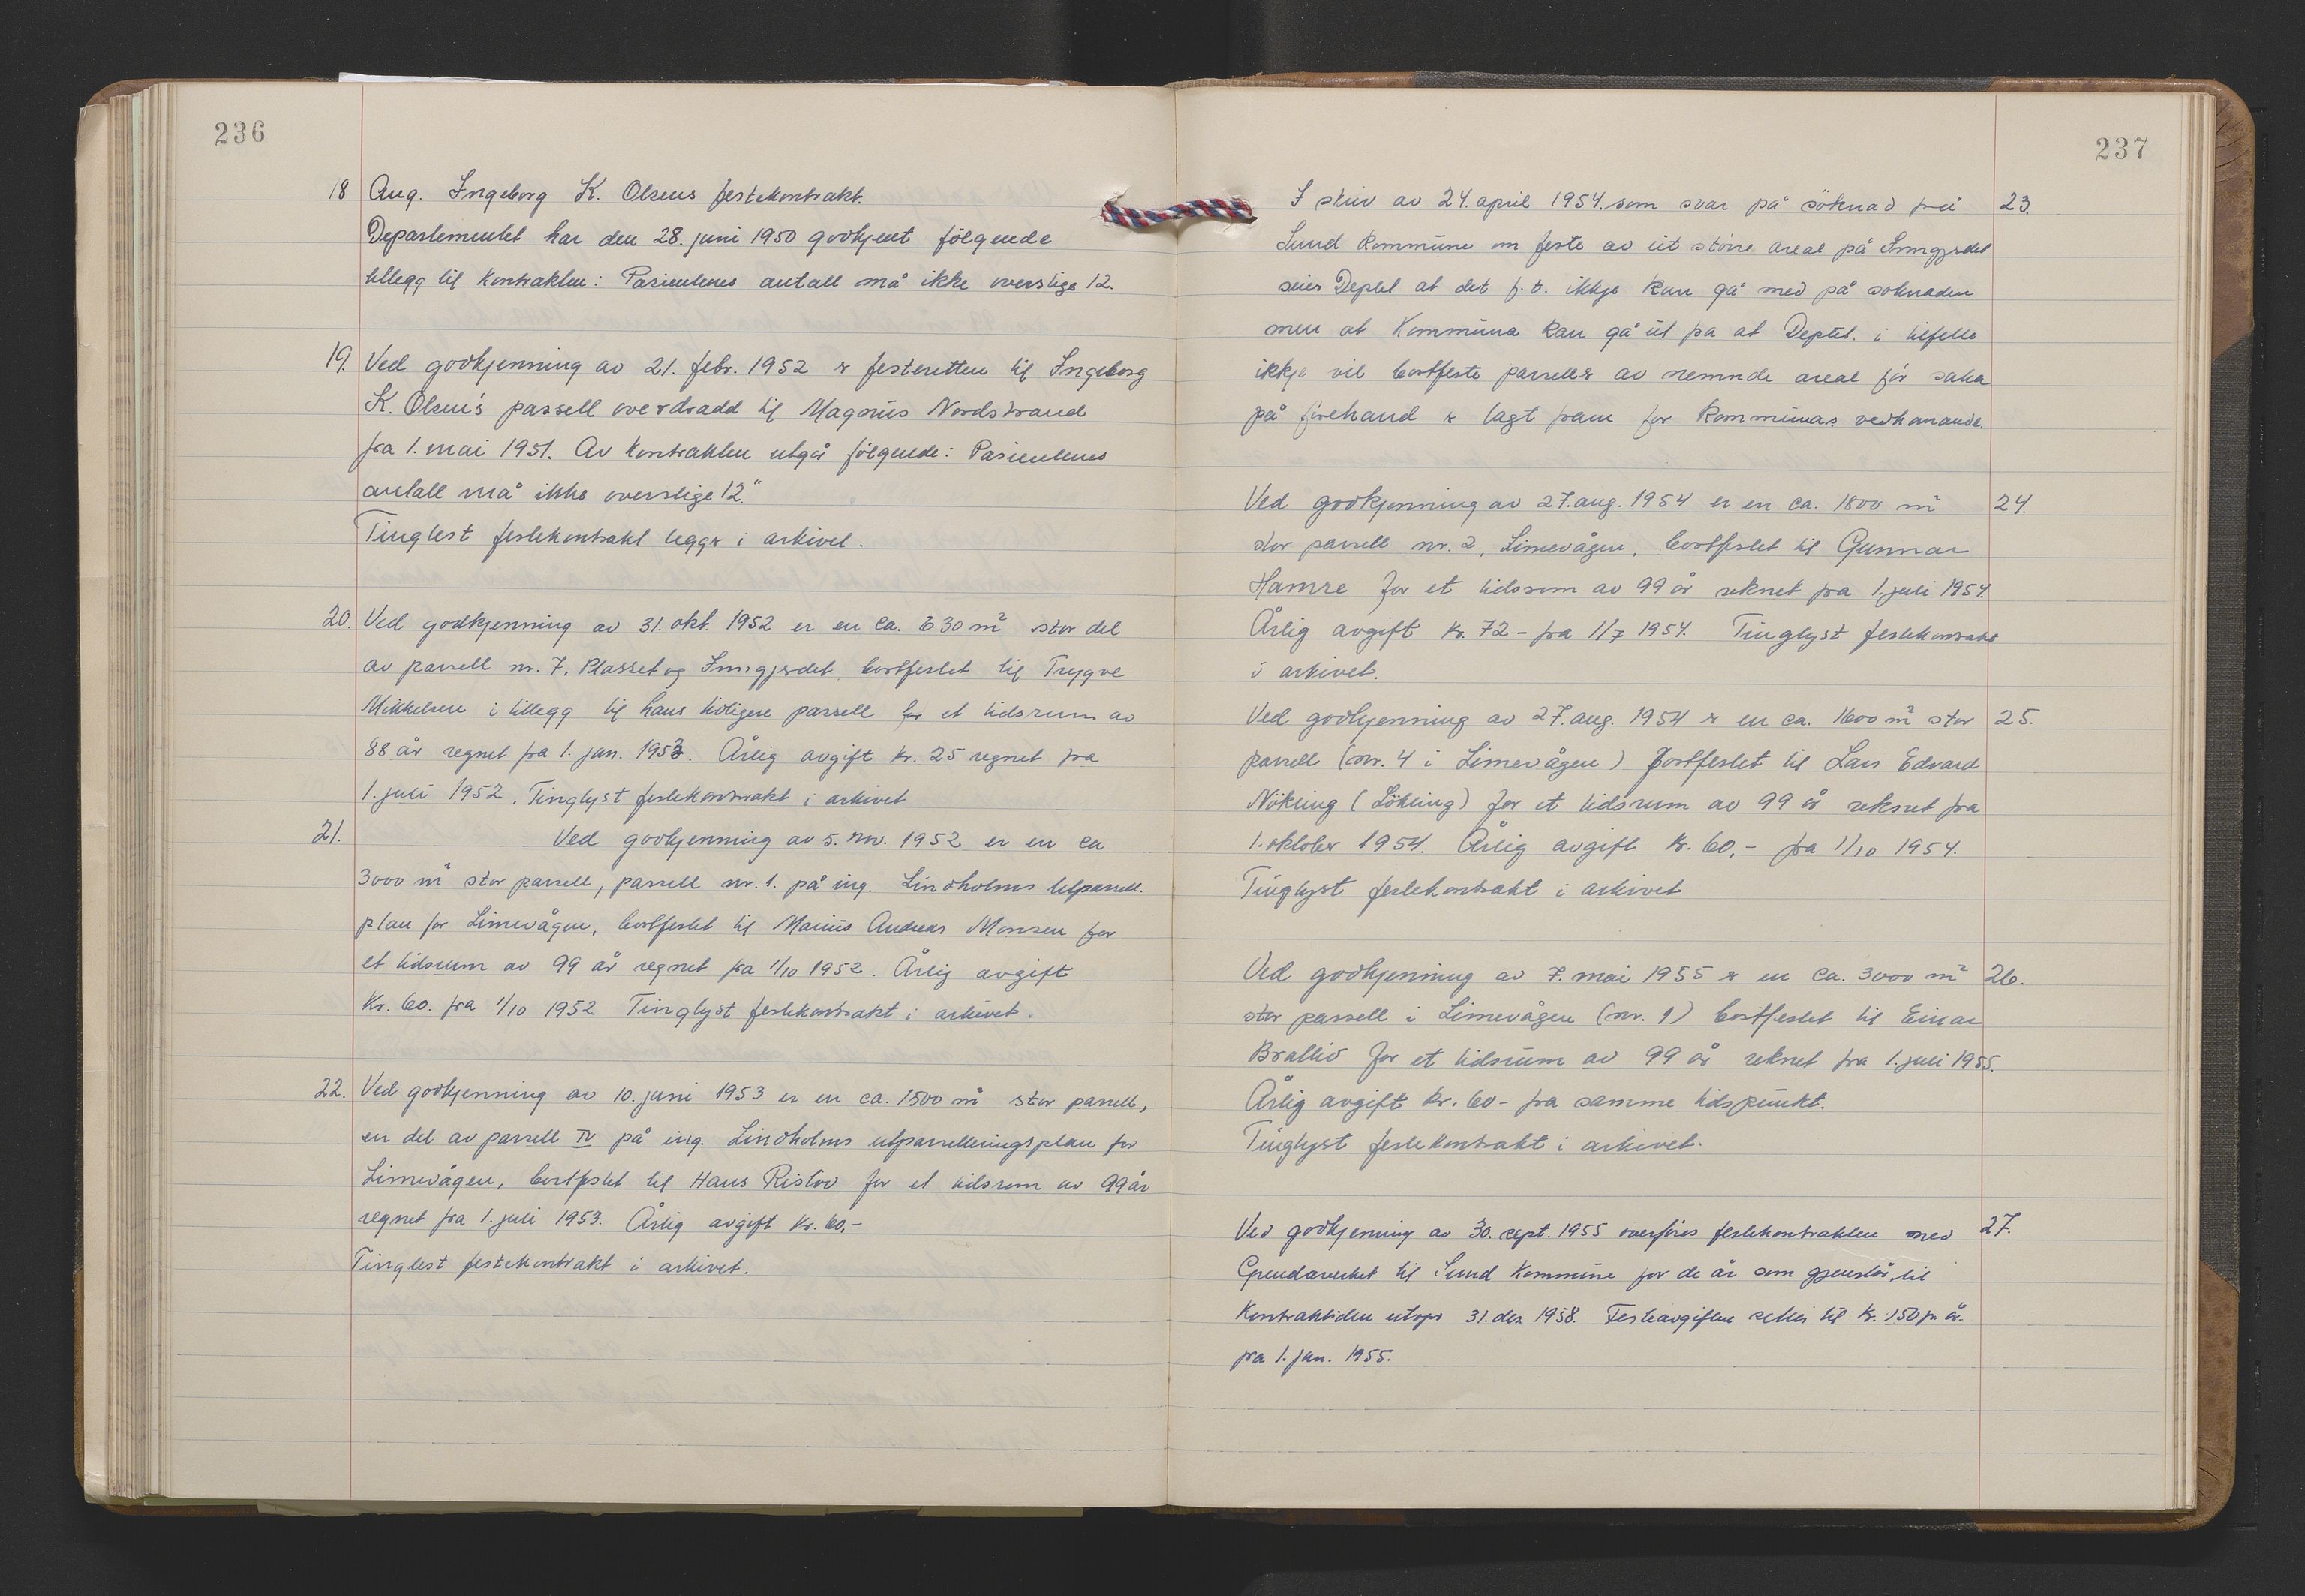 236
18 Ang. Ingeborg K. Olsens festekontrakt.
Departementet har den 28. juni 1950 godkjent følgende
tillegg til kontrakten: Pasientenes antall må ikke overstige 12.
19. Ved godkjenning av 21. febr. 1952 er festeretten til Ingeborg
K. Olsen's parsell overdradd til Magnus Nordstrand
fra 1. mai 1951. Av kontrakten utgår følgende: Pasientenes
antall må ikke overstige 12."
Tinglest festekontrakt legges i arkivet.
20. Ved godkjenning av 31. okt. 1952 er en ca. 630 m² stor del
av parsell nr. 7, Plasset og Inngjerdet bortfestet til Trygve
Mikkelsen i tillegg til hans tidligere parsell for et tidsrum av
88 år regnet fra 1. jan. 1953. Årlig avgift kr. 25 regnet fra
1. juli 1952. Tinglyst festekontrakt i arkivet
21. Ved godkjenning av 5. nov. 1952 er en ca
3000 m² stor parsell, parsell nr. 1. på ing. Lindholms utparsell.
plan for Limevågen, bortfestet til Marius Andreas Monsen for
et tidsrum av 99 år regnet fra 1/10 1952. Årlig avgift
Kr. 60. fra 1/10 1952 Tinglyst festekontrakt i arkivet.
22. Ved godkjenning av 10. juni 1953 er en ca. 1500 m² stor parsell,
en del av parsell IV på ing. Lindholms utparselleringsplan for
Limevågen, bortfestet til Hans Ristov for et tidsrom av 99 år
regnet fra 1. juli 1953. Årlig avgift kr. 60,-
Tinglest festekontrakt i arkivet.
237
I skriv av 24. april 1954 som svar på søknad frå 23.
Sund kommune om feste av eit større areal på Inngjerdet
seier Deptet at det f. t. ikkje kan gå med på søknaden
men at Kommuna kan gå ut fra at Deptet. i tilfelle
ikkje vil bortfeste parseller av nemnde areal før saka
på førehand er lagt fram for kommunas vedkomande.
Ved godkjenning av 27. aug. 1954 er en ca. 1800 m² 24.
stor parsell nr. 2, Limevågen, bortfestet til Gunnar
Hamre for et tidsrom av 99 år reknet fra 1. juli 1954.
Årlig avgift kr. 72 - fra 1/7 1954. Tinglyst festekontrakt
i arkivet.
Ved godkjenning av 27. aug. 1954 er en ca. 1600 m² stor 25.
parsell (nr. 4 i Limevågen) bortfestet til Lars Edvard
Nökling (Lökling) for et tidsrum av 99 år reknet fra
1. oktober 1954. Årlig avgift kr. 60,- fra 1/10 1954.
Tinglyst festekontrakt i arkivet
Ved godkjenning av 7. mai 1955 er en ca. 3000 m² 26.
stor parsell i Limevågen (nr. 1) bortfestet til Einar
Brattlid for et tidsrum av 99 år reknet fra 1. juli 1955.
Årlig avgift kr. 60 - fra samme tidspunkt.
Tinglyst festekontrakt i arkivet.
Ved godkjenning av 30. sept. 1955 overføres festekontrakten med 27.
til Sund Kommune for de år som gjenstår, til
Kontraktstiden utløper 31. des. 1958. Festeavgiften settes til kr. 150 pr. år.
fra 1. jan. 1955.